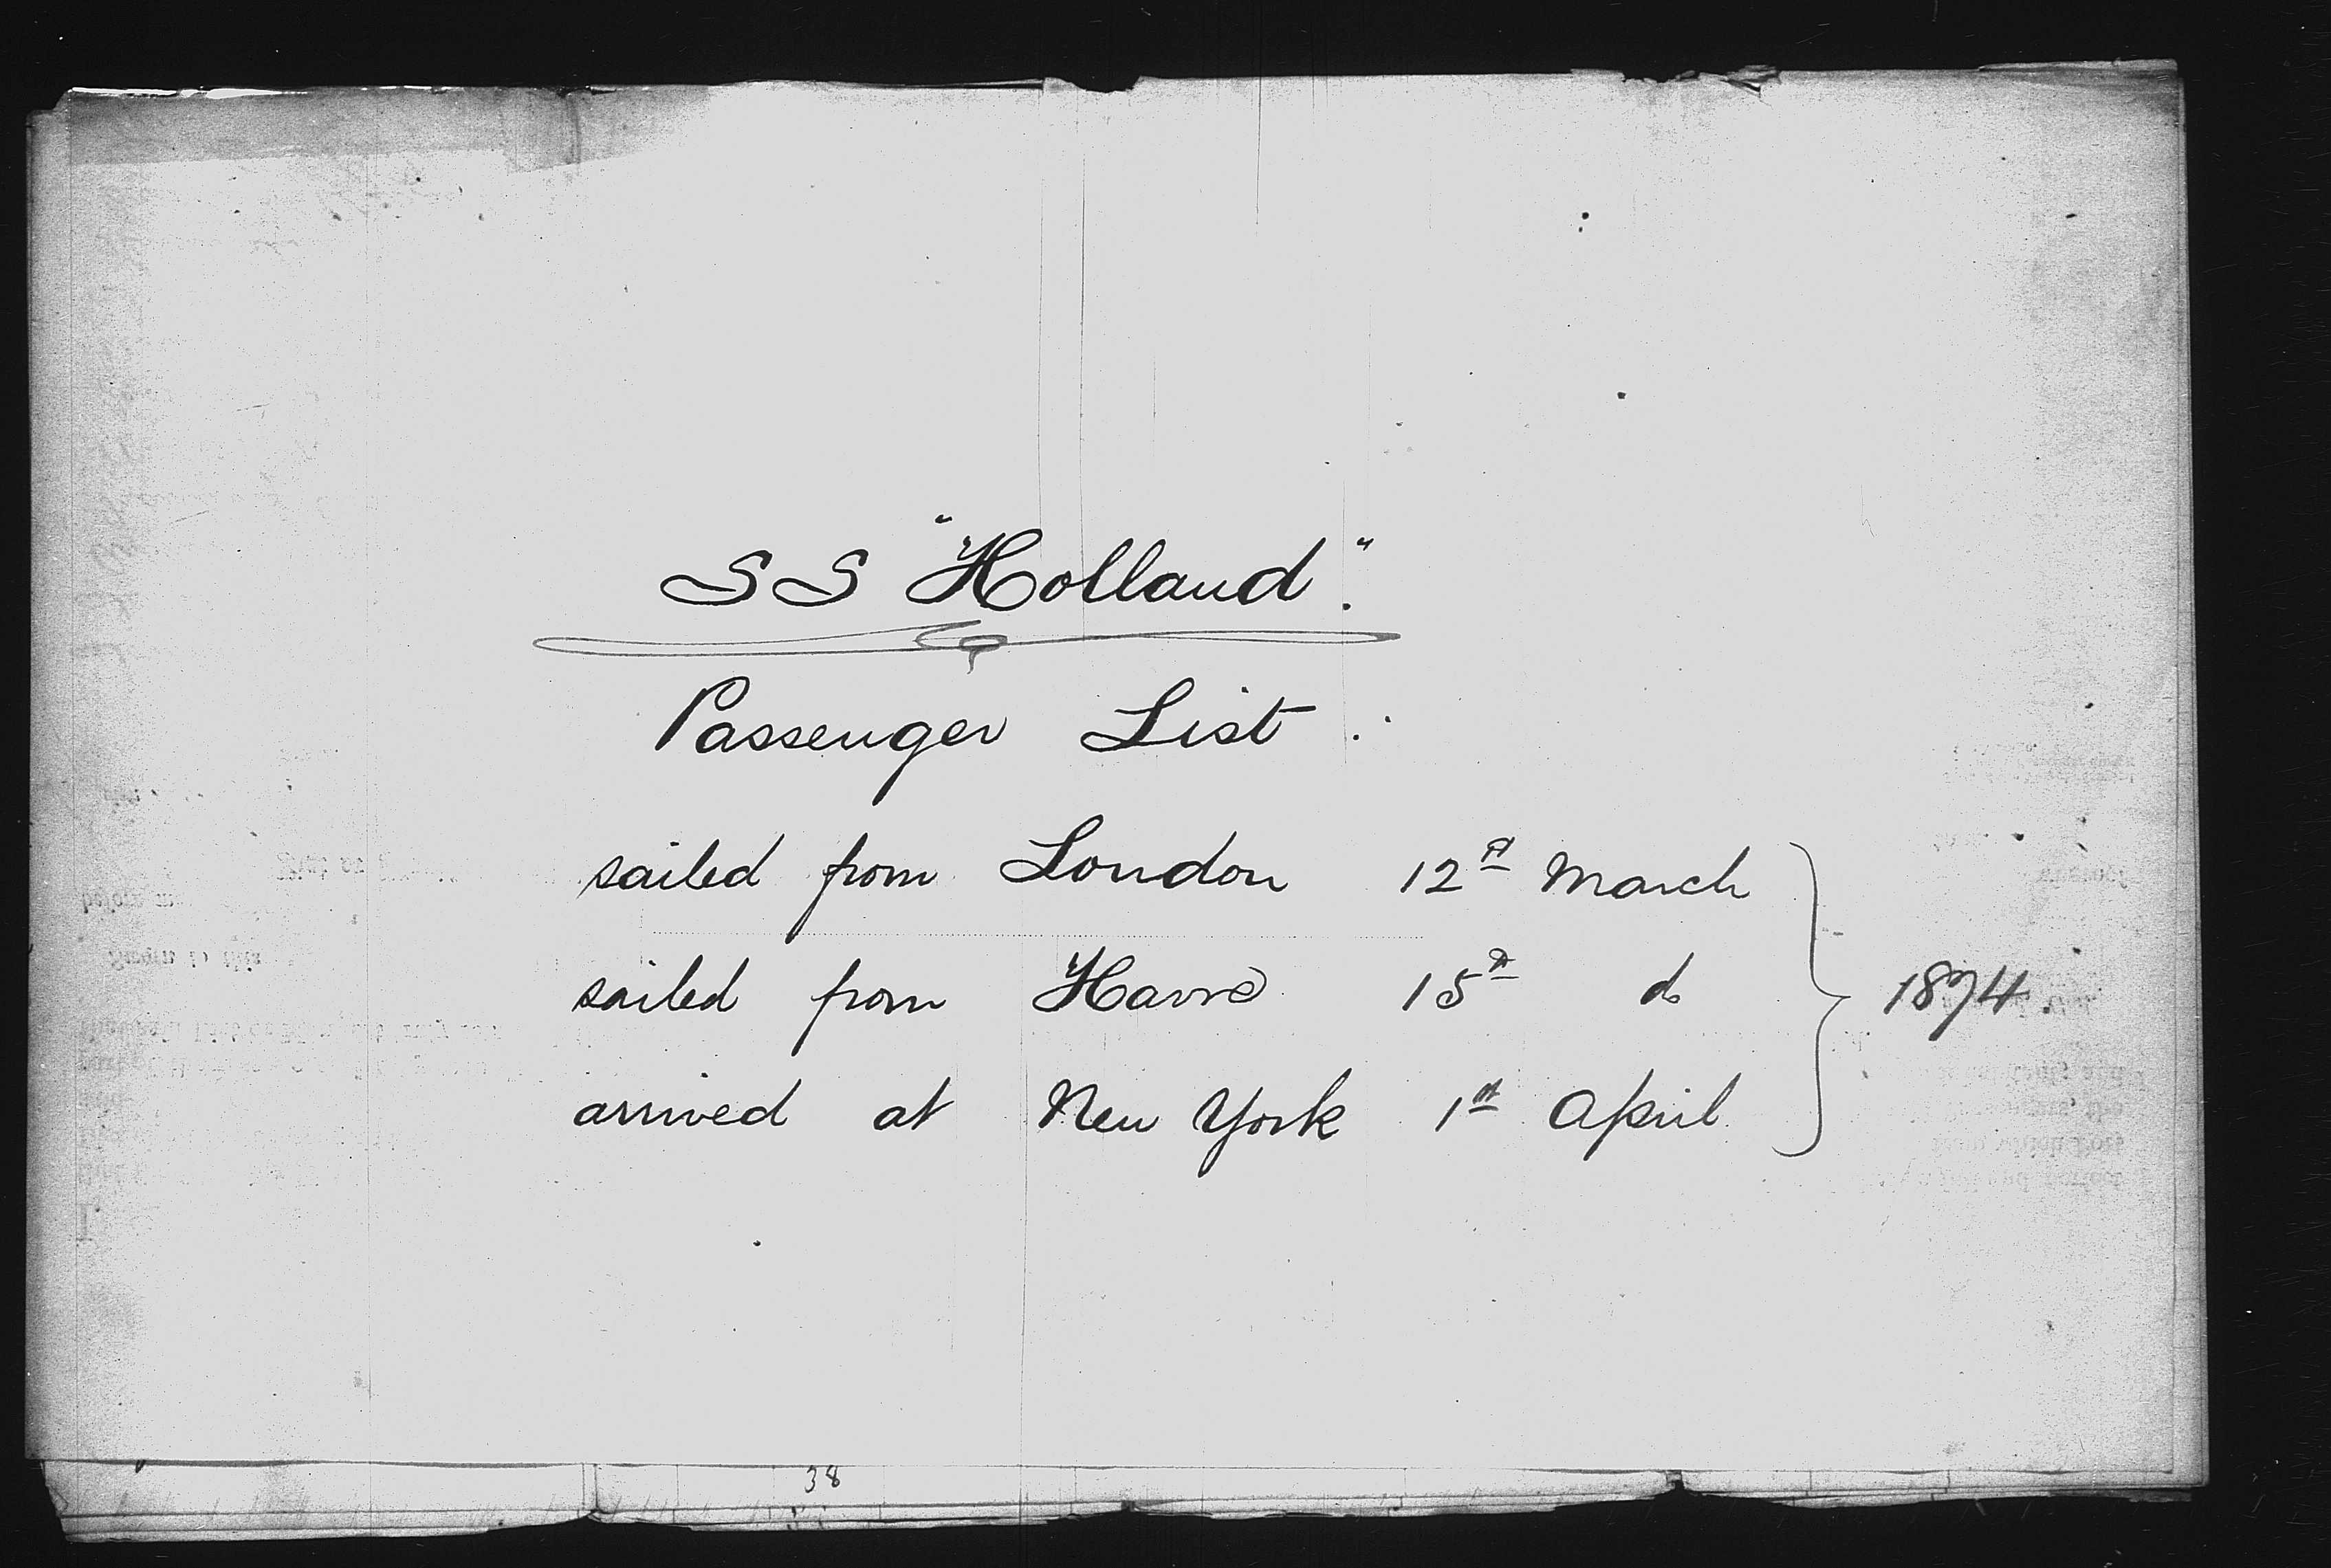 SS "Holland".
Passenger List.
sailed from London 12th March
sailed from Havre 15th do
arrived at New York 1st April
1874
38